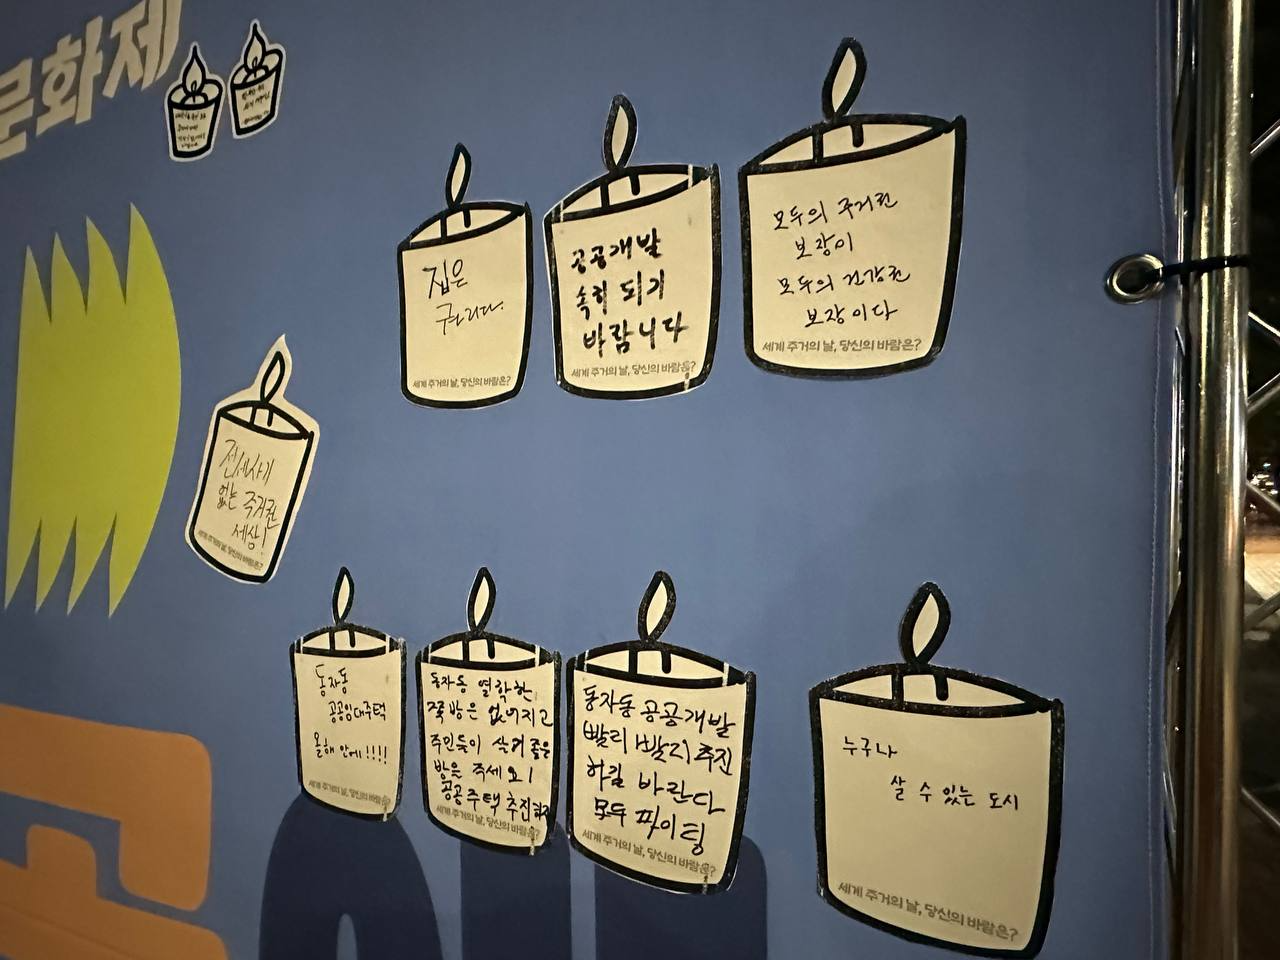 문화제
집은
권리다.
세계 주거의 날, 당신의 바람은?
공공개발
속히 되기
바랍니다
세계 주거의 날, 당신의 바람은?
모두의 주거권
보장이
모두의 건강권
보장이다
세계 주거의 날, 당신의 바람은?
전세사기
없는 주거권
세상!
세계 주거의 날, 당신의 바람은?
동자동
공공임대주택
올해 안에!!!!
세계 주거의 날, 당신의 바람은?
동자동 열악한
쪽방은 없어지고
주민들이 살기 좋은
방을 주세요!
공공주택 추진하라
세계 주거의 날, 당신의 바람은?
동자동 공공개발
빨리 빨리 추진
하길 바란다
모두 파이팅
세계 주거의 날, 당신의 바람은?
누구나
살 수 있는 도시
세계 주거의 날, 당신의 바람은?